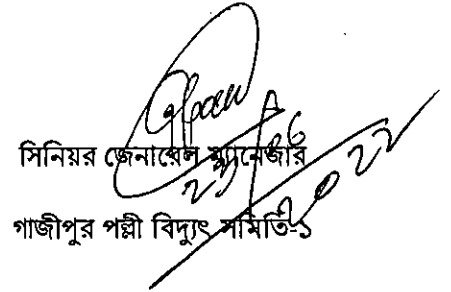 সিনিয়র জেনারেল ম্যানেজার
গাজীপুর পল্লী বিদ্যুৎ সমিতি-১